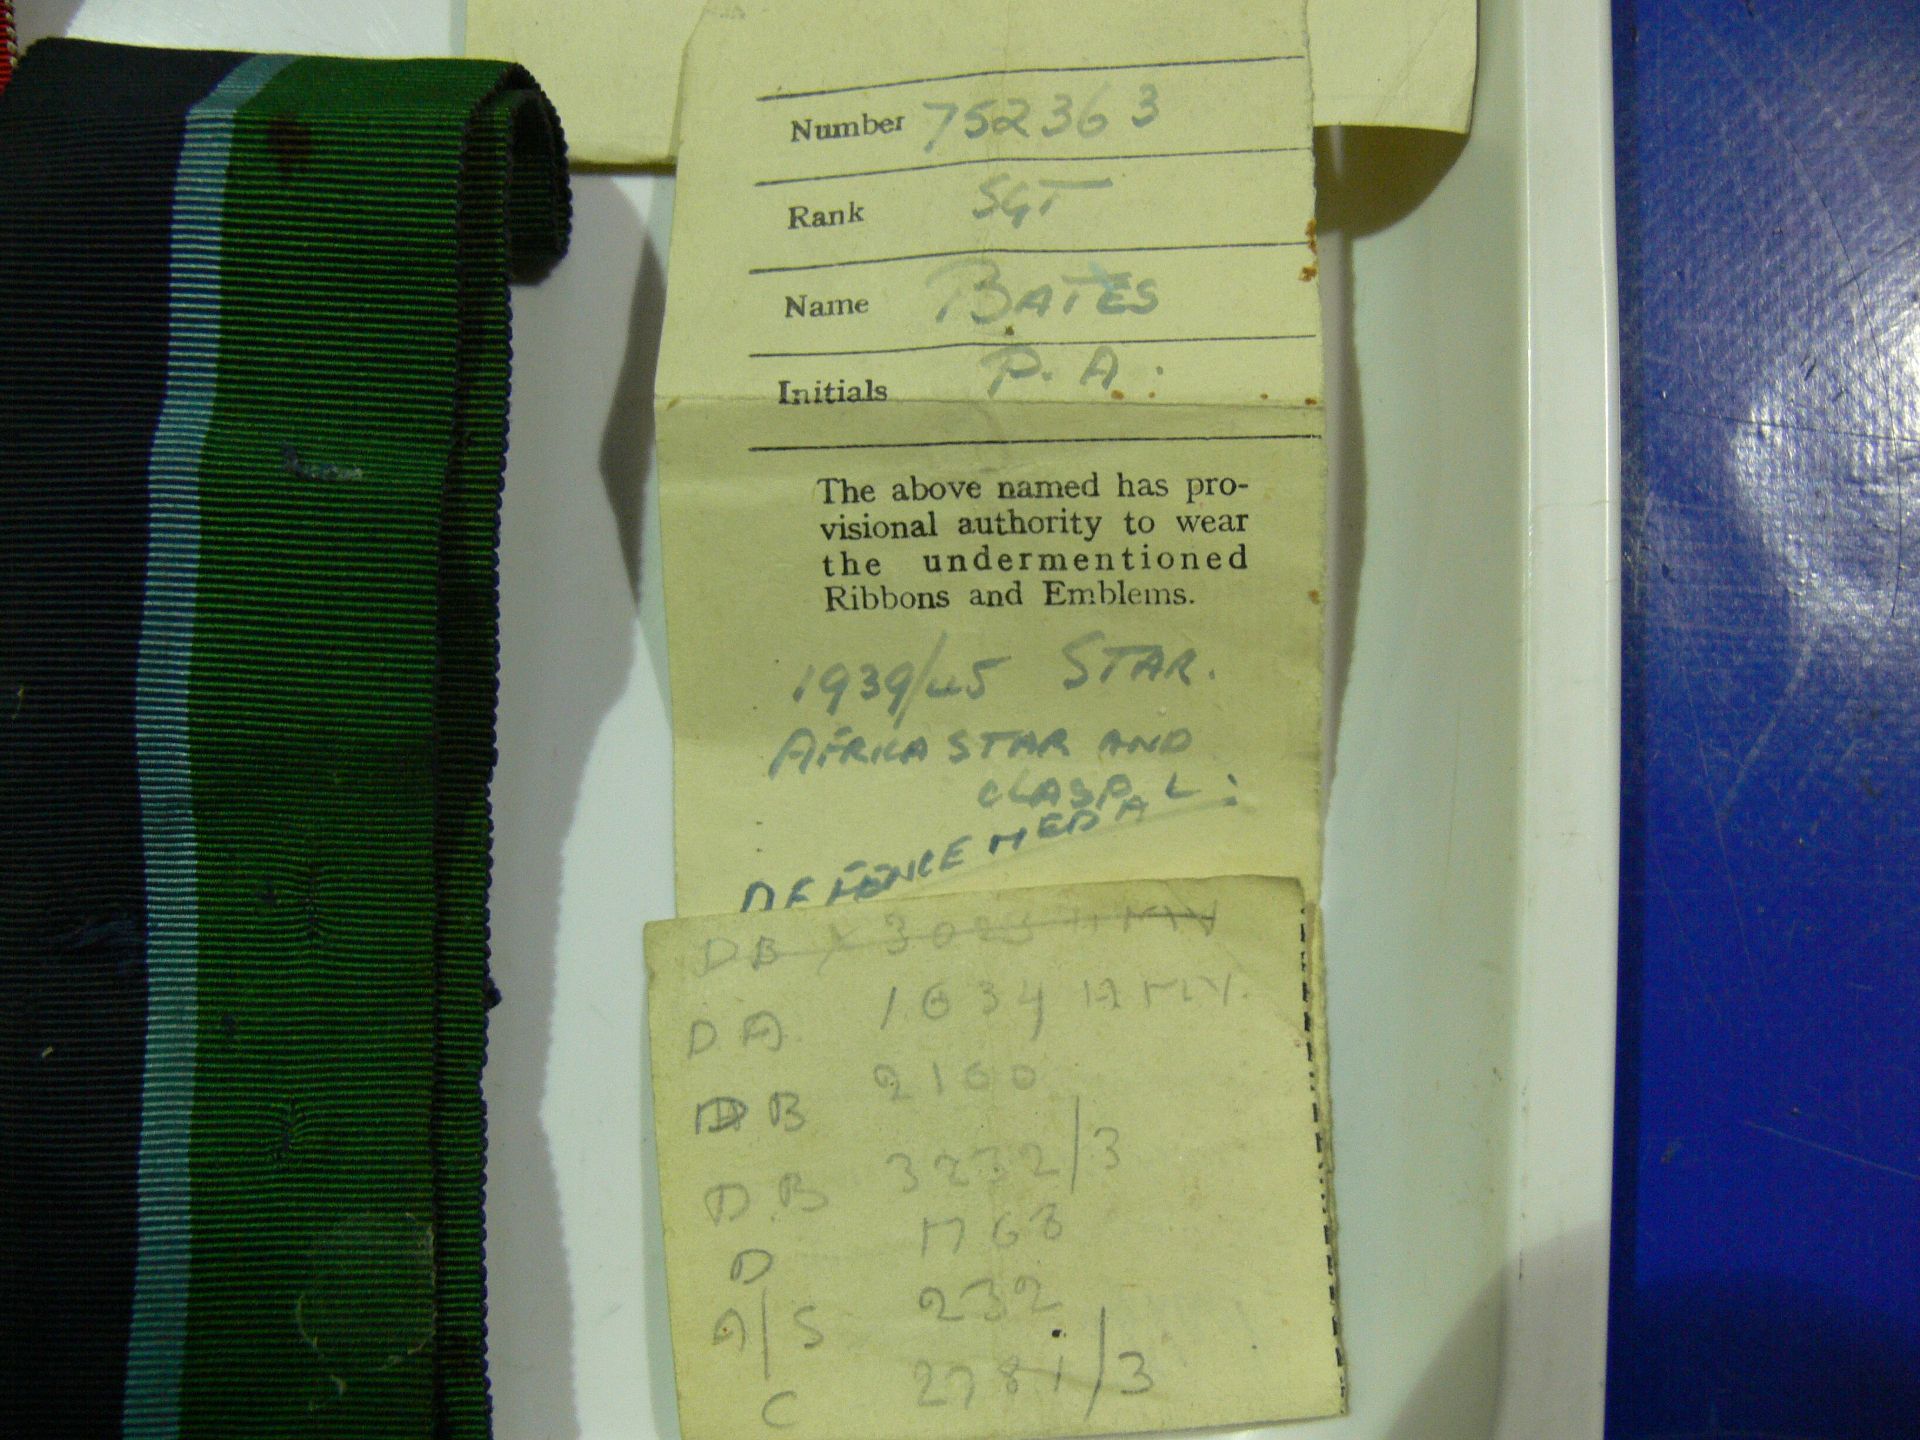 Number 752363
Rank SGT
Name BATES
Initials P. A.
The above named has pro-
visional authority to wear
the undermentioned
Ribbons and Emblems.
1939/45 STAR.
AFRICA STAR AND
CLASP
DEFENCE MEDAL :
DB
DA 1634
DB 2100
DB 3232/3
D
A/S 232
C 2781/3